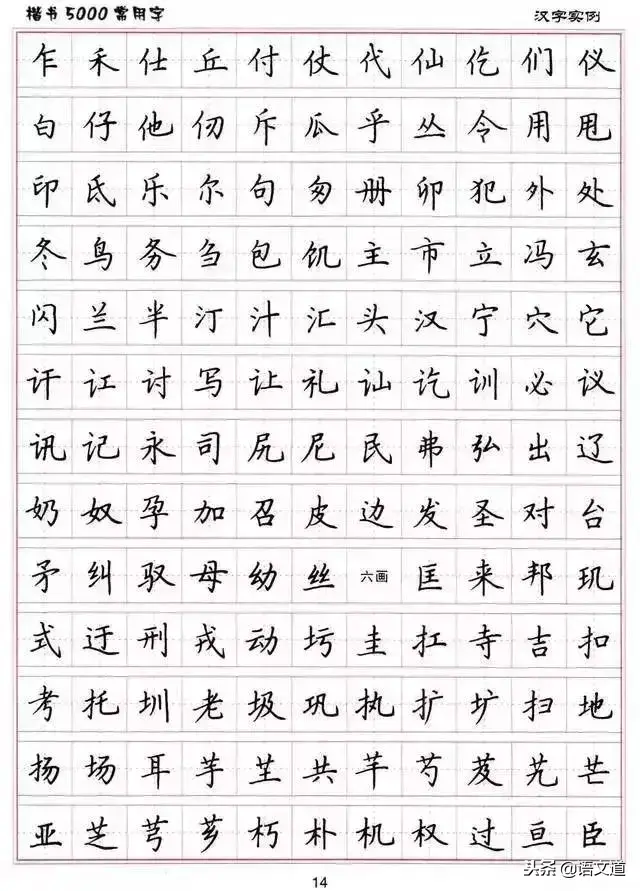 楷书5000常用字 汉字实例
乍 禾 仕 丘 付 仗 代 仙 仡 们 仪
白 仔 他 仞 斥 瓜 乎 丛 令 用 甩
印 氐 乐 尔 句 匆 册 卯 犯 外 处
冬 鸟 务 刍 包 饥 主 市 立 冯 玄
闪 兰 半 汀 汁 汇 头 汉 宁 穴 它
讦 讧 讨 写 让 礼 讪 讫 训 必 议
讯 记 永 司 尻 尼 民 弗 弘 出 辽
奶 奴 孕 加 召 皮 边 发 圣 对 台
矛 纠 驭 母 幼 丝 六画 匡 耒 邦 玑
式 迂 刑 戎 动 圬 圭 扛 寺 吉 扣
考 托 圳 老 圾 巩 执 扩 圹 扫 地
扬 场 耳 芋 共 芊 芍 芨 芄 芒
亚 芝 芎 芗 朽 朴 机 权 过 亘 臣
14
头条@语文道